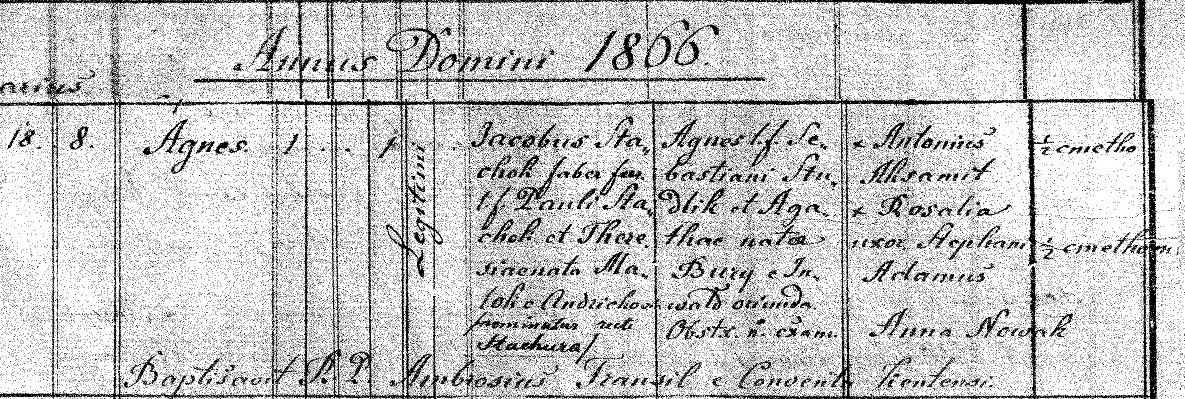 Annus Domini 1866.
arius
18. 8. Agnes 1 . . 1 . Legitimi
Jacobus Sta,
chok faber fer
l.f. Pauli Sta,
chok et There,
siae nata Ma,
tok e Andrichow
nominatur recte
Stachura/
Agnes l.f. Se,
bastiani Stu,
dlik et Aga,
thae natae
Bury e In,
wald oriunda
Obstx. n. exam.
+ Antonius
Aksamit
+ Rosalia
uxor Stephani
Adamus
Anna Nowak
½ cmetho
½ cmethoni.
Baptisavit P. P. Ambrosius Transil e Conventu Kentensi.